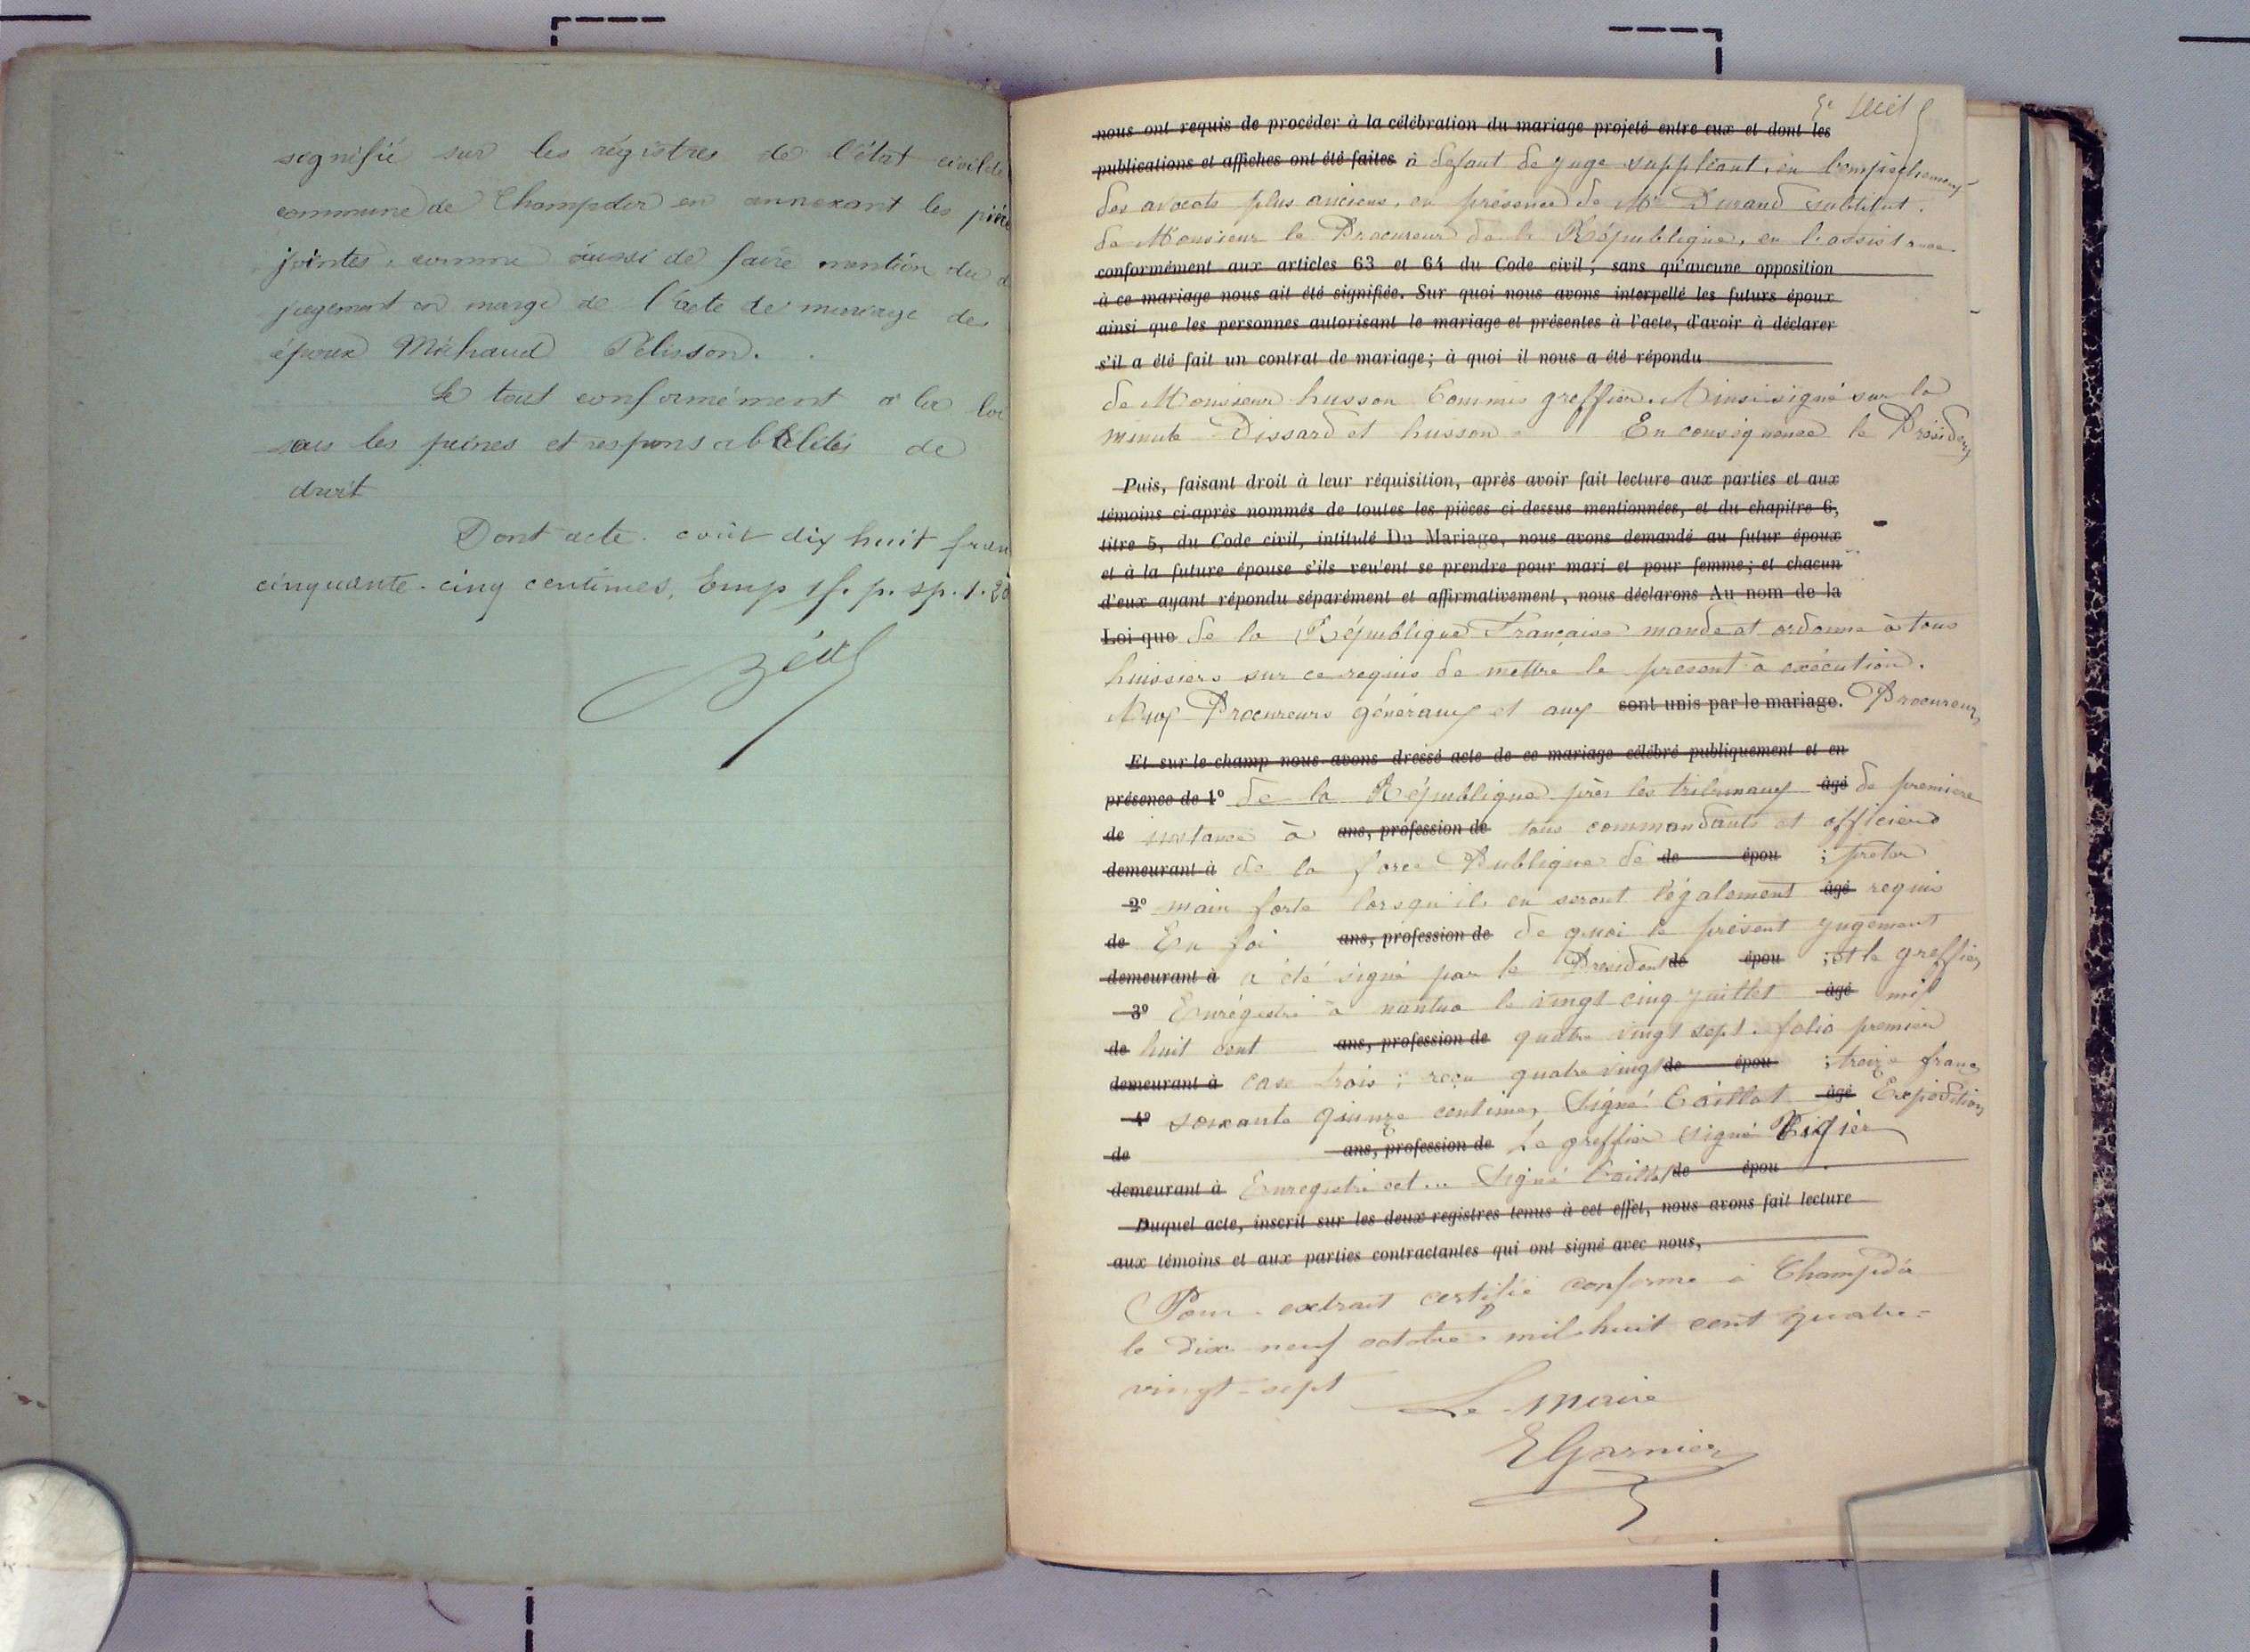 signifié sur les régistres de l'état civil de
commune de Champdor en annexant les pièce
jointes, comme aussi de faire mention du d
jugement en marge de l'acte de mariage des
époux Michaud Pélisson.
Le tout conformément a la loi
sous les peines et responsabilités de
droit
Dont acte. coût dix huit fran
cinquante-cinq centimes, Emp 1 f. p. sp. 1.20
nous ont requis de procéder à la célébration du mariage projeté entre eux et dont les
publications et affiches ont été faites à defaut de juge suppléant, en l'empêchement
des avocats plus anciens, en présence de Mr Durand substitut.
de Monsieur le Procureur de la République, en l'assistance
conformément aux articles 63 et 64 du Code civil, sans qu'aucune opposition
à ce mariage nous ait été signifiée. Sur quoi nous avons interpellé les futurs époux
ainsi que les personnes autorisant le mariage et présentes à l'acte, d'avoir à déclarer
s'il a été fait un contrat de mariage; à quoi il nous a été répondu
de Monsieur husson Commis greffier. Ainsi signé sur la
minute Dissard et husson. En conséquence le Président
Puis, faisant droit à leur réquisition, après avoir fait lecture aux parties et aux
témoins ci-après nommés de toutes les pièces ci-dessus mentionnées, et du chapitre 6,
titre 5, du Code civil, intitulé Du Mariage, nous avons demandé au futur époux
et à la future épouse s'ils veu'ent se prendre pour mari et pour femme; et chacun
d'eux ayant répondu séparément et affirmativement, nous déclarons Au nom de la
Loi que de la République Française mande et ordonne à tous
huissiers sur ce requis de mettre le present à exécution.
Aux Procureurs généraux et aux sont unis par le mariage. Procureurs
Et sur-le-champ nous avons dressé acte de ce mariage célébré publiquement et en
présence de 1° de la République près les tribunaux âgé de premiere
de instance à ans, profession de tous commandants et officiers
demeurant à de la force Publique de de épou ; preter
2° main forte lorsqu'ils en seront légalement âgé requis
de En foi ans, profession de de quoi le présent jugement
demeurant à a été signé par le President de épou ; et le greffier
3° Enrégistré à nantua le vingt cinq juillet âgé mil
de huit cent ans, profession de quatre vingt sept. folio premier
demeurant à case trois ; reçu quatre vingt de épou ; treize francs
4° soixante quinze centimes Signé Caillat âgé Expedition
de ans, profession de Le greffier signé
demeurant à Enregistré cet... Signé Caillat de épou
Duquel acte, inscrit sur les deux registres tenus à cet effet, nous avons fait lecture
aux témoins et aux parties contractantes qui ont signé avec nous,
Pour extrait certifié conforme à Champdor
le dix neuf octobre mil huit cent quatre=
vingt-sept
Le Maire
E Garnier